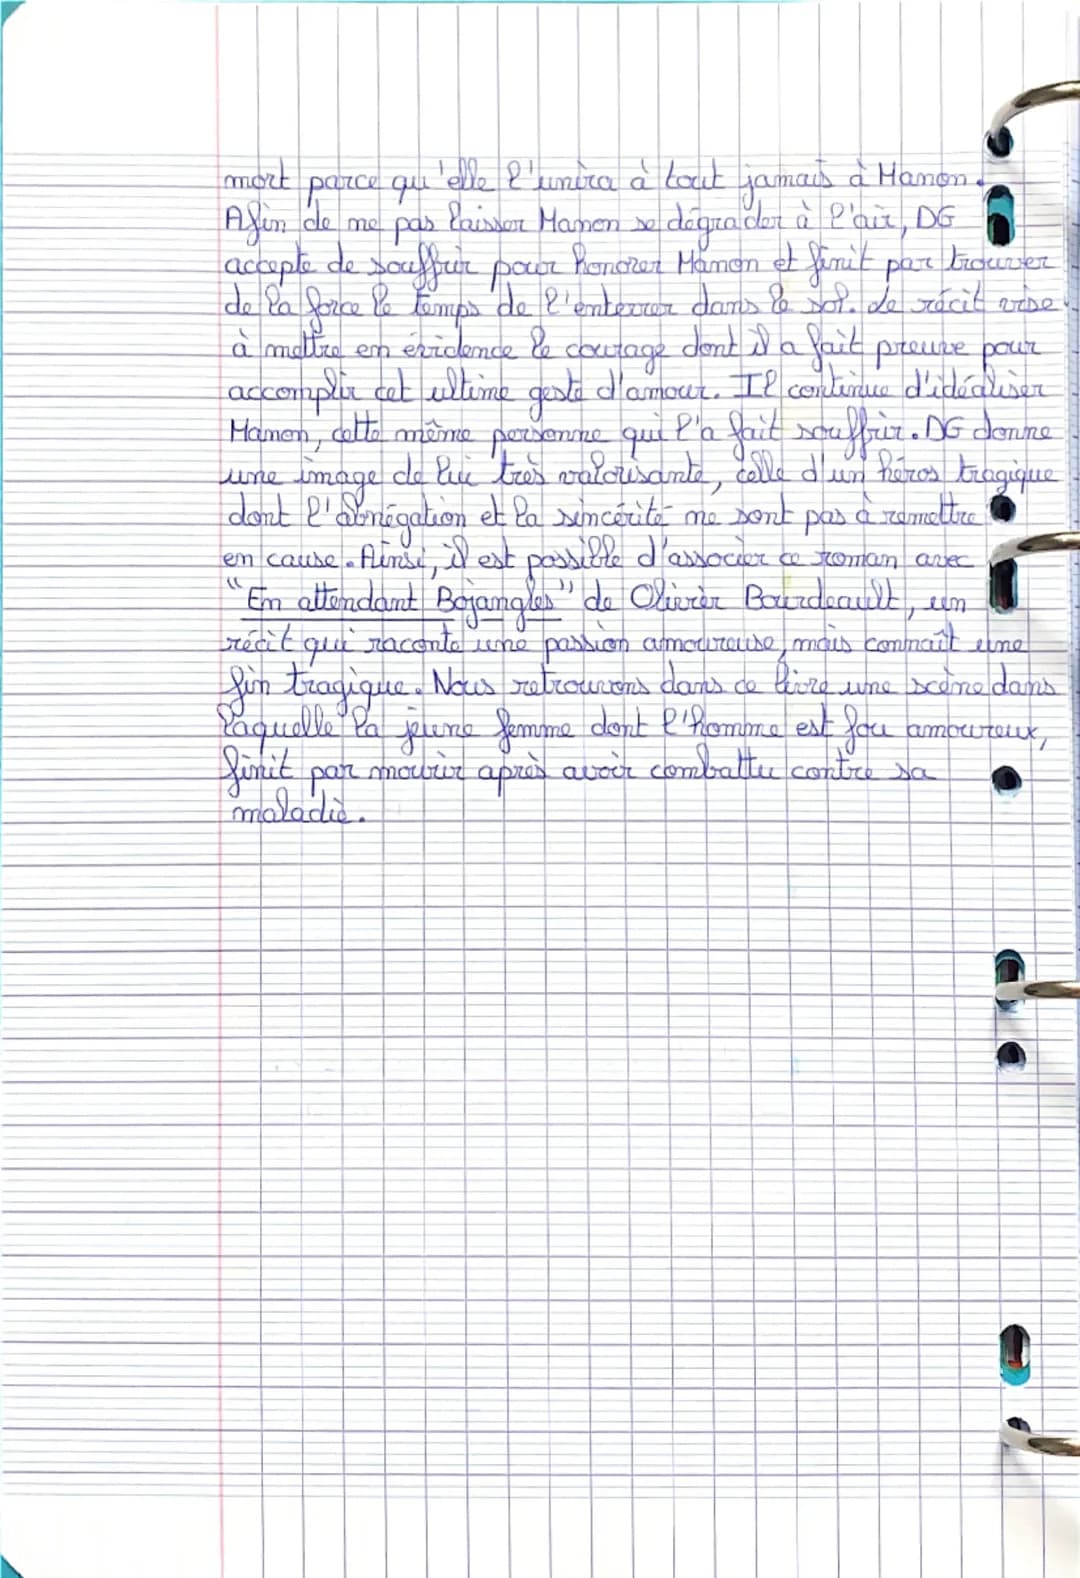 mort parce qu'elle l'unira à tout jamais à Manon.
Afin de ne pas laisser Manon se dégrader à l'air, DG
accepte de souffrir pour honorer Manon et finit par trouver
de la force le temps de l'enterrer dans le sol. Le récit vise
à mettre en évidence le courage dont il a fait preuve pour
accomplir cet ultime geste d'amour. Il continue d'idéaliser
Manon, cette même personne qui l'a fait souffrir. DG donne
une image de lui très valorisante, celle d'un héros tragique
dont l'abnégation et la sincérité ne sont pas à remettre
en cause. Ainsi, il est possible d'associer ce roman avec
"En attendant Bojangles" de Olivier Bourdeault, un
récit qui raconte une passion amoureuse, mais connaît une
fin tragique. Nous retrouvons dans ce livre une scène dans
laquelle la jeune femme dont l'homme est fou amoureux,
finit par mourir après avoir combattu contre sa
maladie.